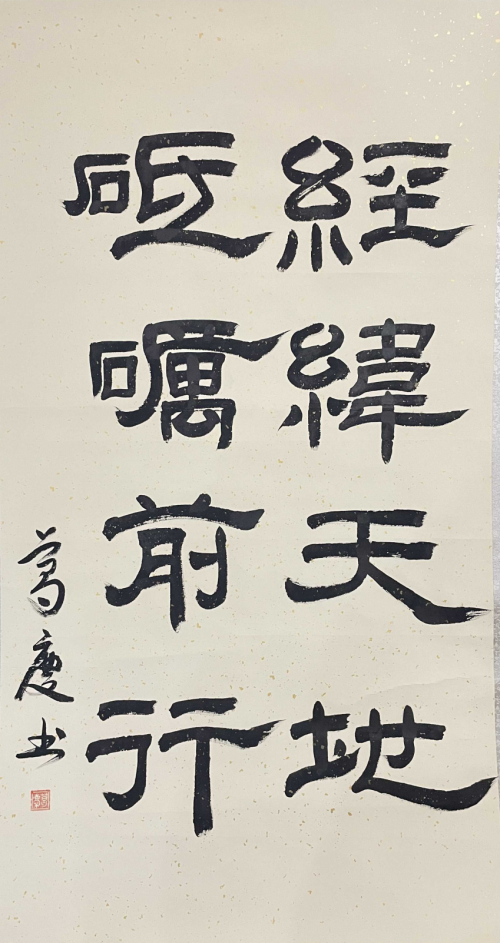 經緯天地
砥礪前行
葛慶书